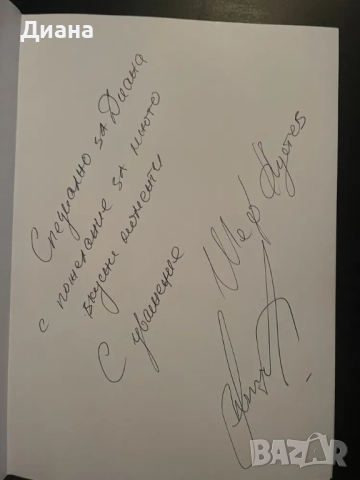 Диана
Специално за Диана
с пожелание за много
вкусни моменти
С уважение
Шеф
BAZAR